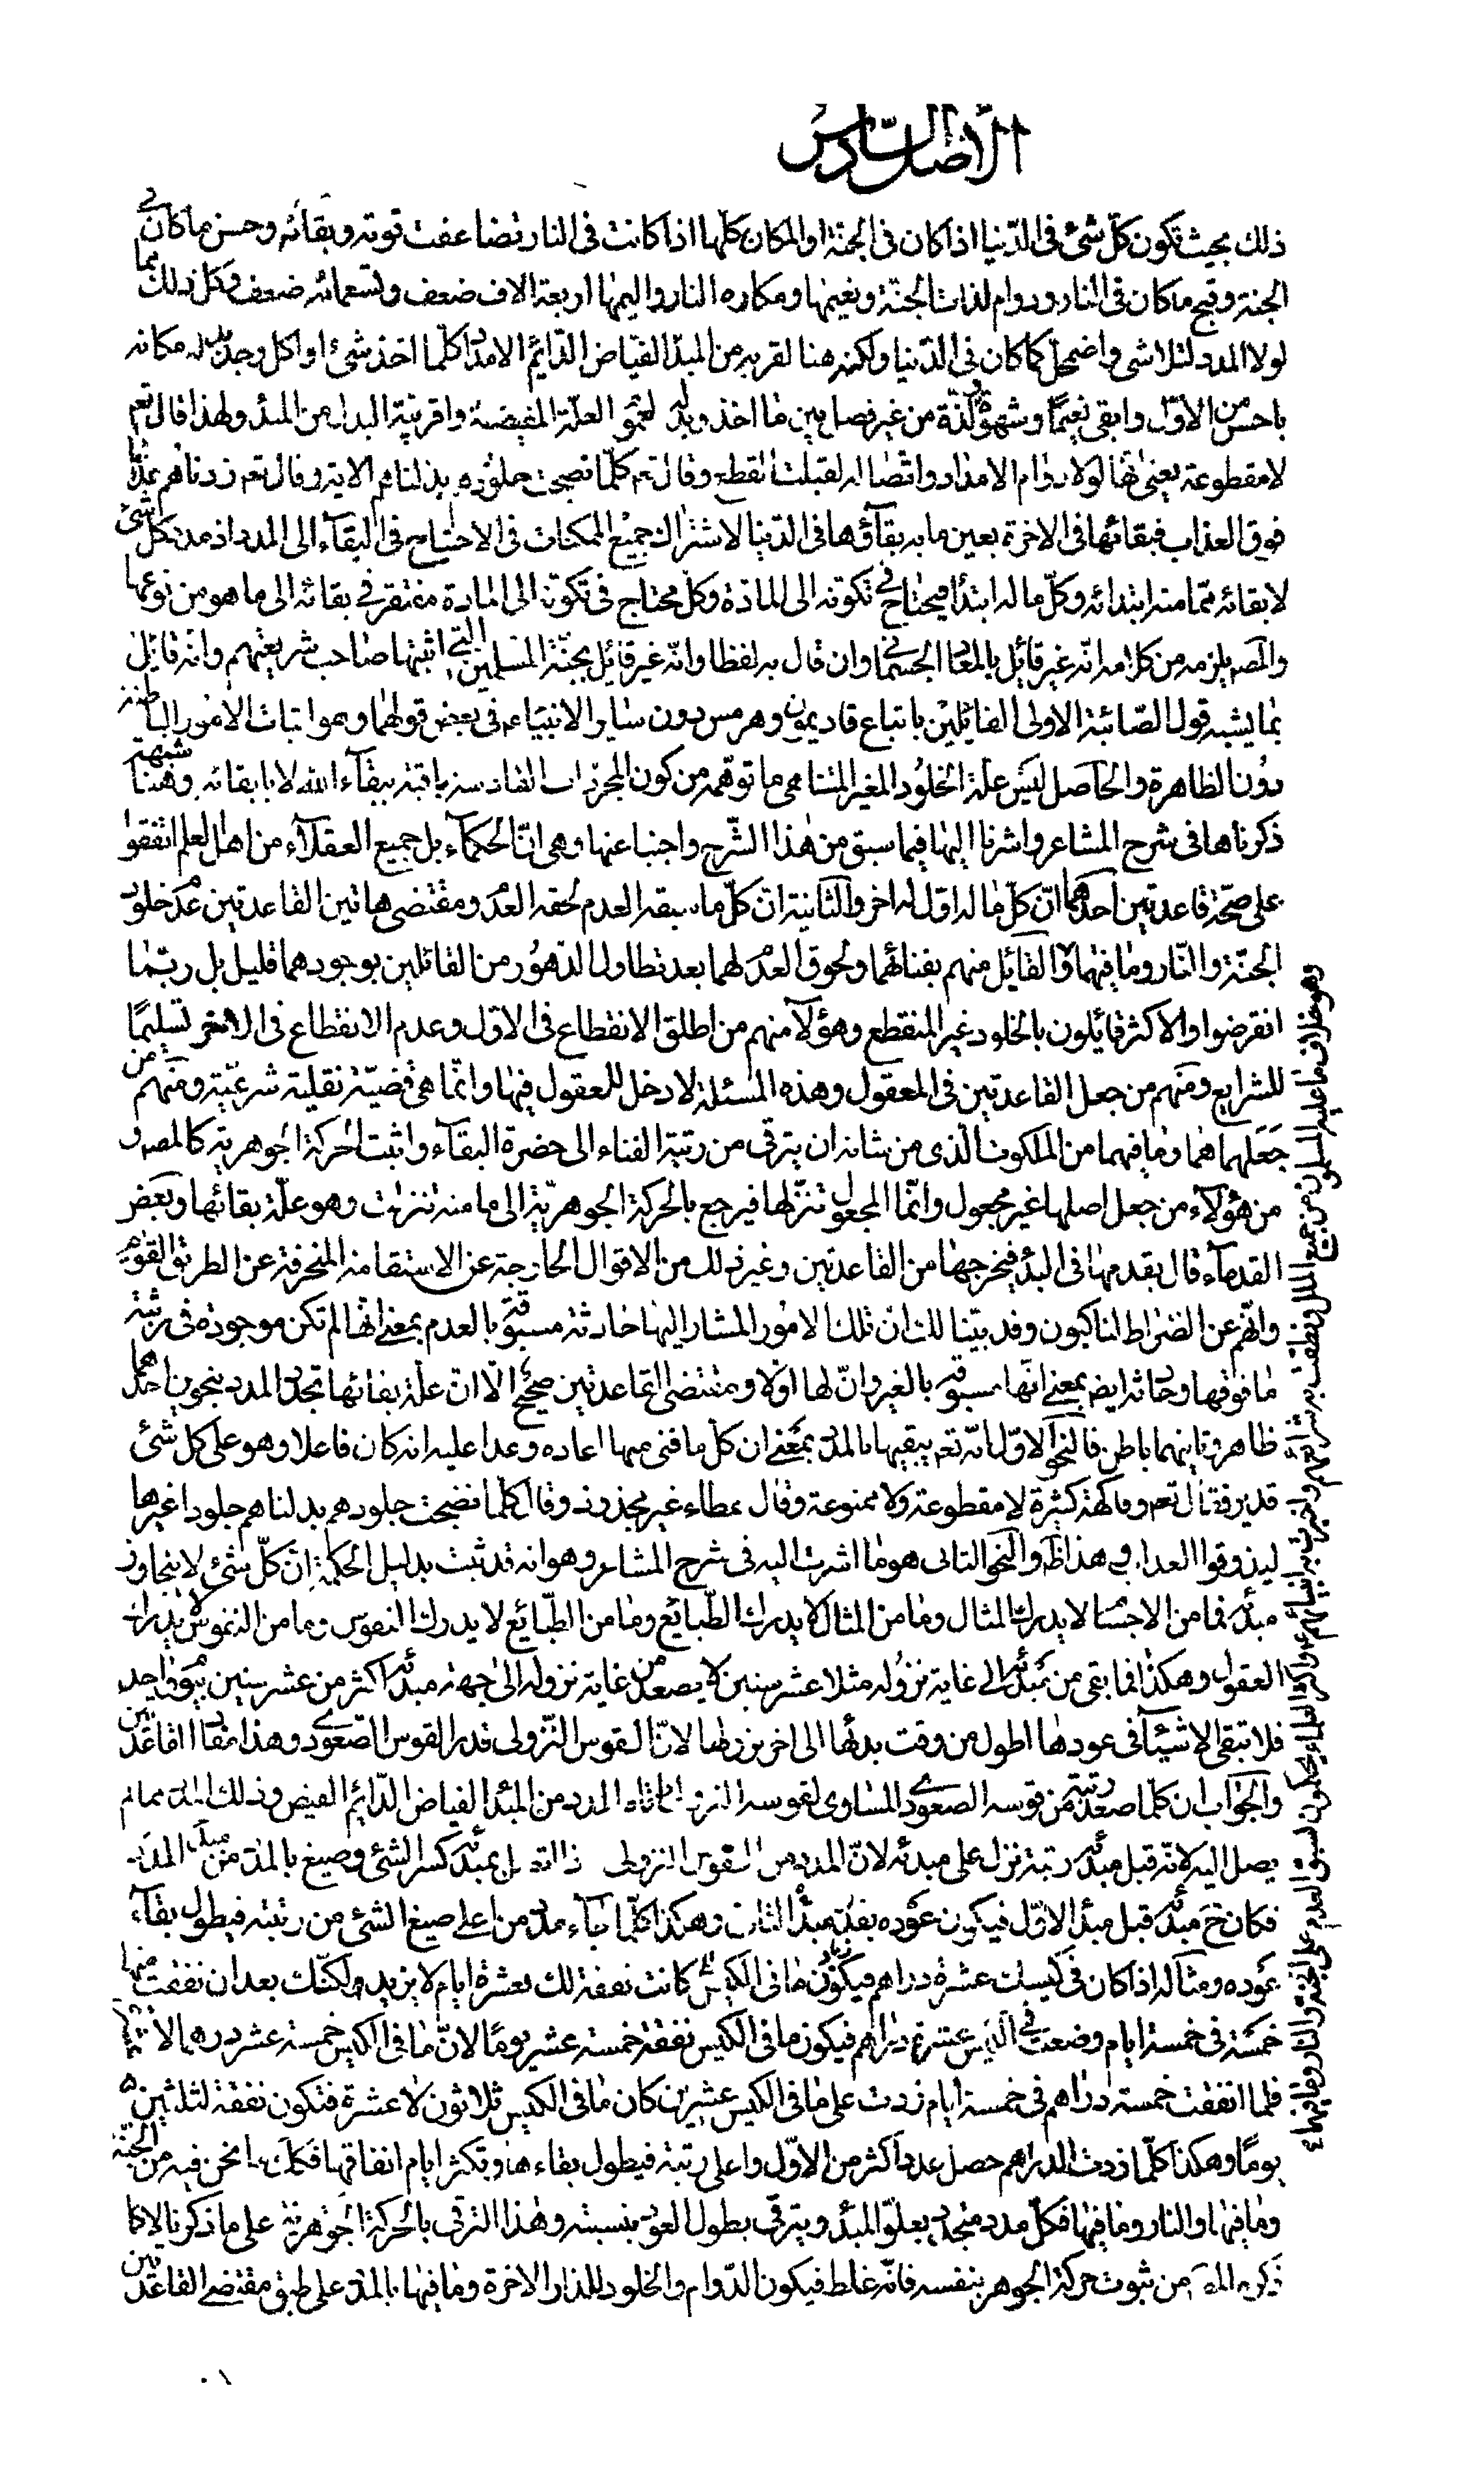 الأصل السادس
ذلك بحيث تكون كلّ شئ فى الدّنيا اذا كان فى الجنّة او المكان كلّها اذا كانت فى النار تضاعفت قوته وبقائه وحسن ما كان فى
الجنة وقبح ما كان فى النار ودوام لذات الجنّة ونعيمها ومكاره النار واليمها اربعة الاف ضعف وتسعمائه ضعف وكل ذلك مما
لولا المدد لتلاشى واضمحل كما كان فى الدّنيا ولكنه هنا لقربه من المبدا الفيّاض الدّائم الامداد كلّما اخذ شئ او اكل وجد بدله مكانه
باحسن من الاوّل وابقى نعيمًا وشهوة ولذّة من غير فصل بين ما اخذ وبدله العلّة المفيضة واقربيّة البدل من المبدء ولهذا قال تعم
لا مقطوعة يعنى انّها لولا دوام الامداد واتّصاله لقبلت القطع وقال تعم كلّما نضجت جلودهم بدلناهم الاية وقال تعم زدناهم عذابا
فوق العذاب فبقائها فى الاخرة بعين ما به بقاؤها فى الدّنيا لاشتراك جميع الممكنات فى الاحتياج فى البقاء الى المدد اذ مدد كل شئ
لابقائه ممّا منه ابتدائه وكلّ ما له ابتداء فيحتاج فى تكوّنه الى المادّة وكلّ محتاج فى تكوّنه الى المادة مفتقر فى بقائه الى ما هو من نوعها
والمصه يلزمه من كلامه انّه غير قائل بالمعاد الجسمانى وان قال به لفظا وانّه غير قائل بجنّة المسلمين التى اثبتها صاحب شريعتهم وانّه قائل
بما يشبه قول الصّائبة الاولى القائلين باتباع عاديمون وهرمس دون ساير الانبياء فى بعض قولهما وهو اثبات الامور الباطنة
دون الظاهرة والحاصل ليس علّة الخلود الغير المتناهى ما توهّمه من كون المجرّدات القادسة باقية ببقاء الله لا بابقائه وهنا شبهة
ذكرناها فى شرح المشاعر واشرنا اليها فيما سبق من هذا الشّرح واجبنا عنها وهى انّ الحكماء بل جميع العقلاء من اهل العلم اتفقوا
على صحّة قاعدتين احدهما انّ كلّ ما له اوّل له اخر والثانية انّ كلّ ما سبقه العدم لحقه العدم ومقتضى هاتين القاعدتين عدم خلود
الجنّة والنّار وما فيهما والقائل منهم بفنائهما ولحوق العدم لهما بعد تطاول الدّهور من القائلين بوجودهما قليل بل ربّما
انقرضوا والاكثر قائلون بالخلود غير المنقطع وهؤلاء منهم من اطلق الانقطاع فى الاول وعدم الانقطاع فى الاخر تسليمًا
للشرايع ومنهم من جعل القاعدتين فى المعقول وهذه المسئلة لا دخل للعقول فيها وانّما هى قضيّة نقلية شرعيّة ومنهم من
جعلهما هما وما فيهما من الملكوت الّذى من شانه ان يترقى من رتبة الفناء الى حضرة البقاء واثبت الحركة الجوهرية كالمصه و
من هؤلاء من جعل اصلها غير مجعول وانّما المجعول تنزّلها فيرجع بالحركة الجوهريّة الى ما منه تنزلت وهو علّة بقائها وبعض
القدماء قال بقدمها فى البدء فيخرجها من القاعدتين وغير ذلك من الاقوال الخارجة عن الاستقامة المنحرفة عن الطريق القويم
وانّهم عن الصّراط لناكبون وقد بيّنا لك ان تلك الامور المشار اليها حادثة مسبوقة بالعدم بمعنى انّها لم تكن موجودة فى رتبة
ما فوقها وحادثة ايض بمعنى انّها مسبوقة بالغير وانّ لها اوّلا ومقتضى القاعدتين صحيح الّا انّ علّة بقائها تجدّد المدد بنحوين احدهما
ظاهر وثانيهما باطن فالنحو الاوّل انّه تعم يبقيها بالمدد بمعنى ان كلّ ما فنى منها اعاده وعدا عليه انه كان فاعلا وهو على كل شئ
قدير فقال تعم وفاكهة كثيرة لا مقطوعة ولا ممنوعة وقال عطاء غير مجذوذ وقال كلّما نضجت جلودهم بدلناهم جلودا غيرها
ليذوقوا العذاب هذا ظ والنحو الثانى هو ما اشرت اليه فى شرح المشاعر وهو انه قد ثبت بدليل الحكمة انّ كلّ شئ لا يتجاوز
مبدئه فما من الاجسام لا يدرك المثال وما من المثال لا يدرك الطّبايع وما من الطّبايع لا يدرك النفوس وما من النفوس لا يدرك
العقول وهكذا فما بقى من مبدئه الى غاية نزوله مثلا عشر سنين لا يصعد من غاية نزوله الى جهة مبدئه اكثر من عشر سنين بيوم واحد
فلا تبقى الاشياء فى عودها اطول من وقت بدئها الى اخر نزولها لانّ القوس النّزولى قدر القوس الصّعودى وهذا مفاد القاعدتين
والجواب ان كلّما صعد رتبة من قوسه الصعودى المساوى لقوسه النزولى اتاه المدد من المبدا الفياض الدّائم الفيض وذلك المدد ممّا لم
يصل اليه لانّه قبل مبدئه رتبة نزل على مبدئه لانّ المدد من القوس النزولى بمبدئه كسر الشئ وصيغ بالمدد من مبدء المدد
فكان ح مبدئه قبل مبدا الاوّل فيكون عوده بقدر مبدئه الثانى وهكذا كلّما جاء مدد من اعلى صيغ الشئ من رتبته فيطول بقاء
عوده ومثاله اذا كان فى كيسك عشرة دراهم فيكون ما فى الكيس كانت نفقة لك بعشرة ايام لا يزيد ولكنّك بعد ان نفقت منها
خمسة فى خمسة ايام وضعت فى الكيس عشرة دراهم فيكون ما فى الكيس نفقة خمسة عشر يومًا لانّ ما فى الكيس خمسة عشر درهما لا
فلما انفقت خمسة دراهم فى خمسة ايام زدت على ما فى الكيس عشرين كان ما فى الكيس ثلاثون لا عشرة فتكون نفقة لثلثين
يومًا وهكذا كلّما زدت الدراهم حصل عدد اكثر من الاوّل واعلى رتبة فيطول بقاءها وتكثر ايام انفاقها فكذلك ما نحن فيه من الجنّة
وما فيها والنار وما فيها فكلّ مدد متجدد بعلوّ المبدء ويترقّى بطول العود بنسبته وهذا الترقى بالحركة الجوهرية على ما ذكرنا لا كما
ذكره المصه من ثبوت حركة الجوهر بنفسه فانّه غلط فيكون الدّوام والخلود للدار الاخرة وما فيها بالمدد على طبق مقتضى القاعدتين
وهو خلاف ما عليه المسلمون من جميع الملل ونطقت به شرائعهم واخبرت به انبيائهم ع واكثر العلماء يحكمون بسبق العدم على الجنة والنار وما فيهما ع